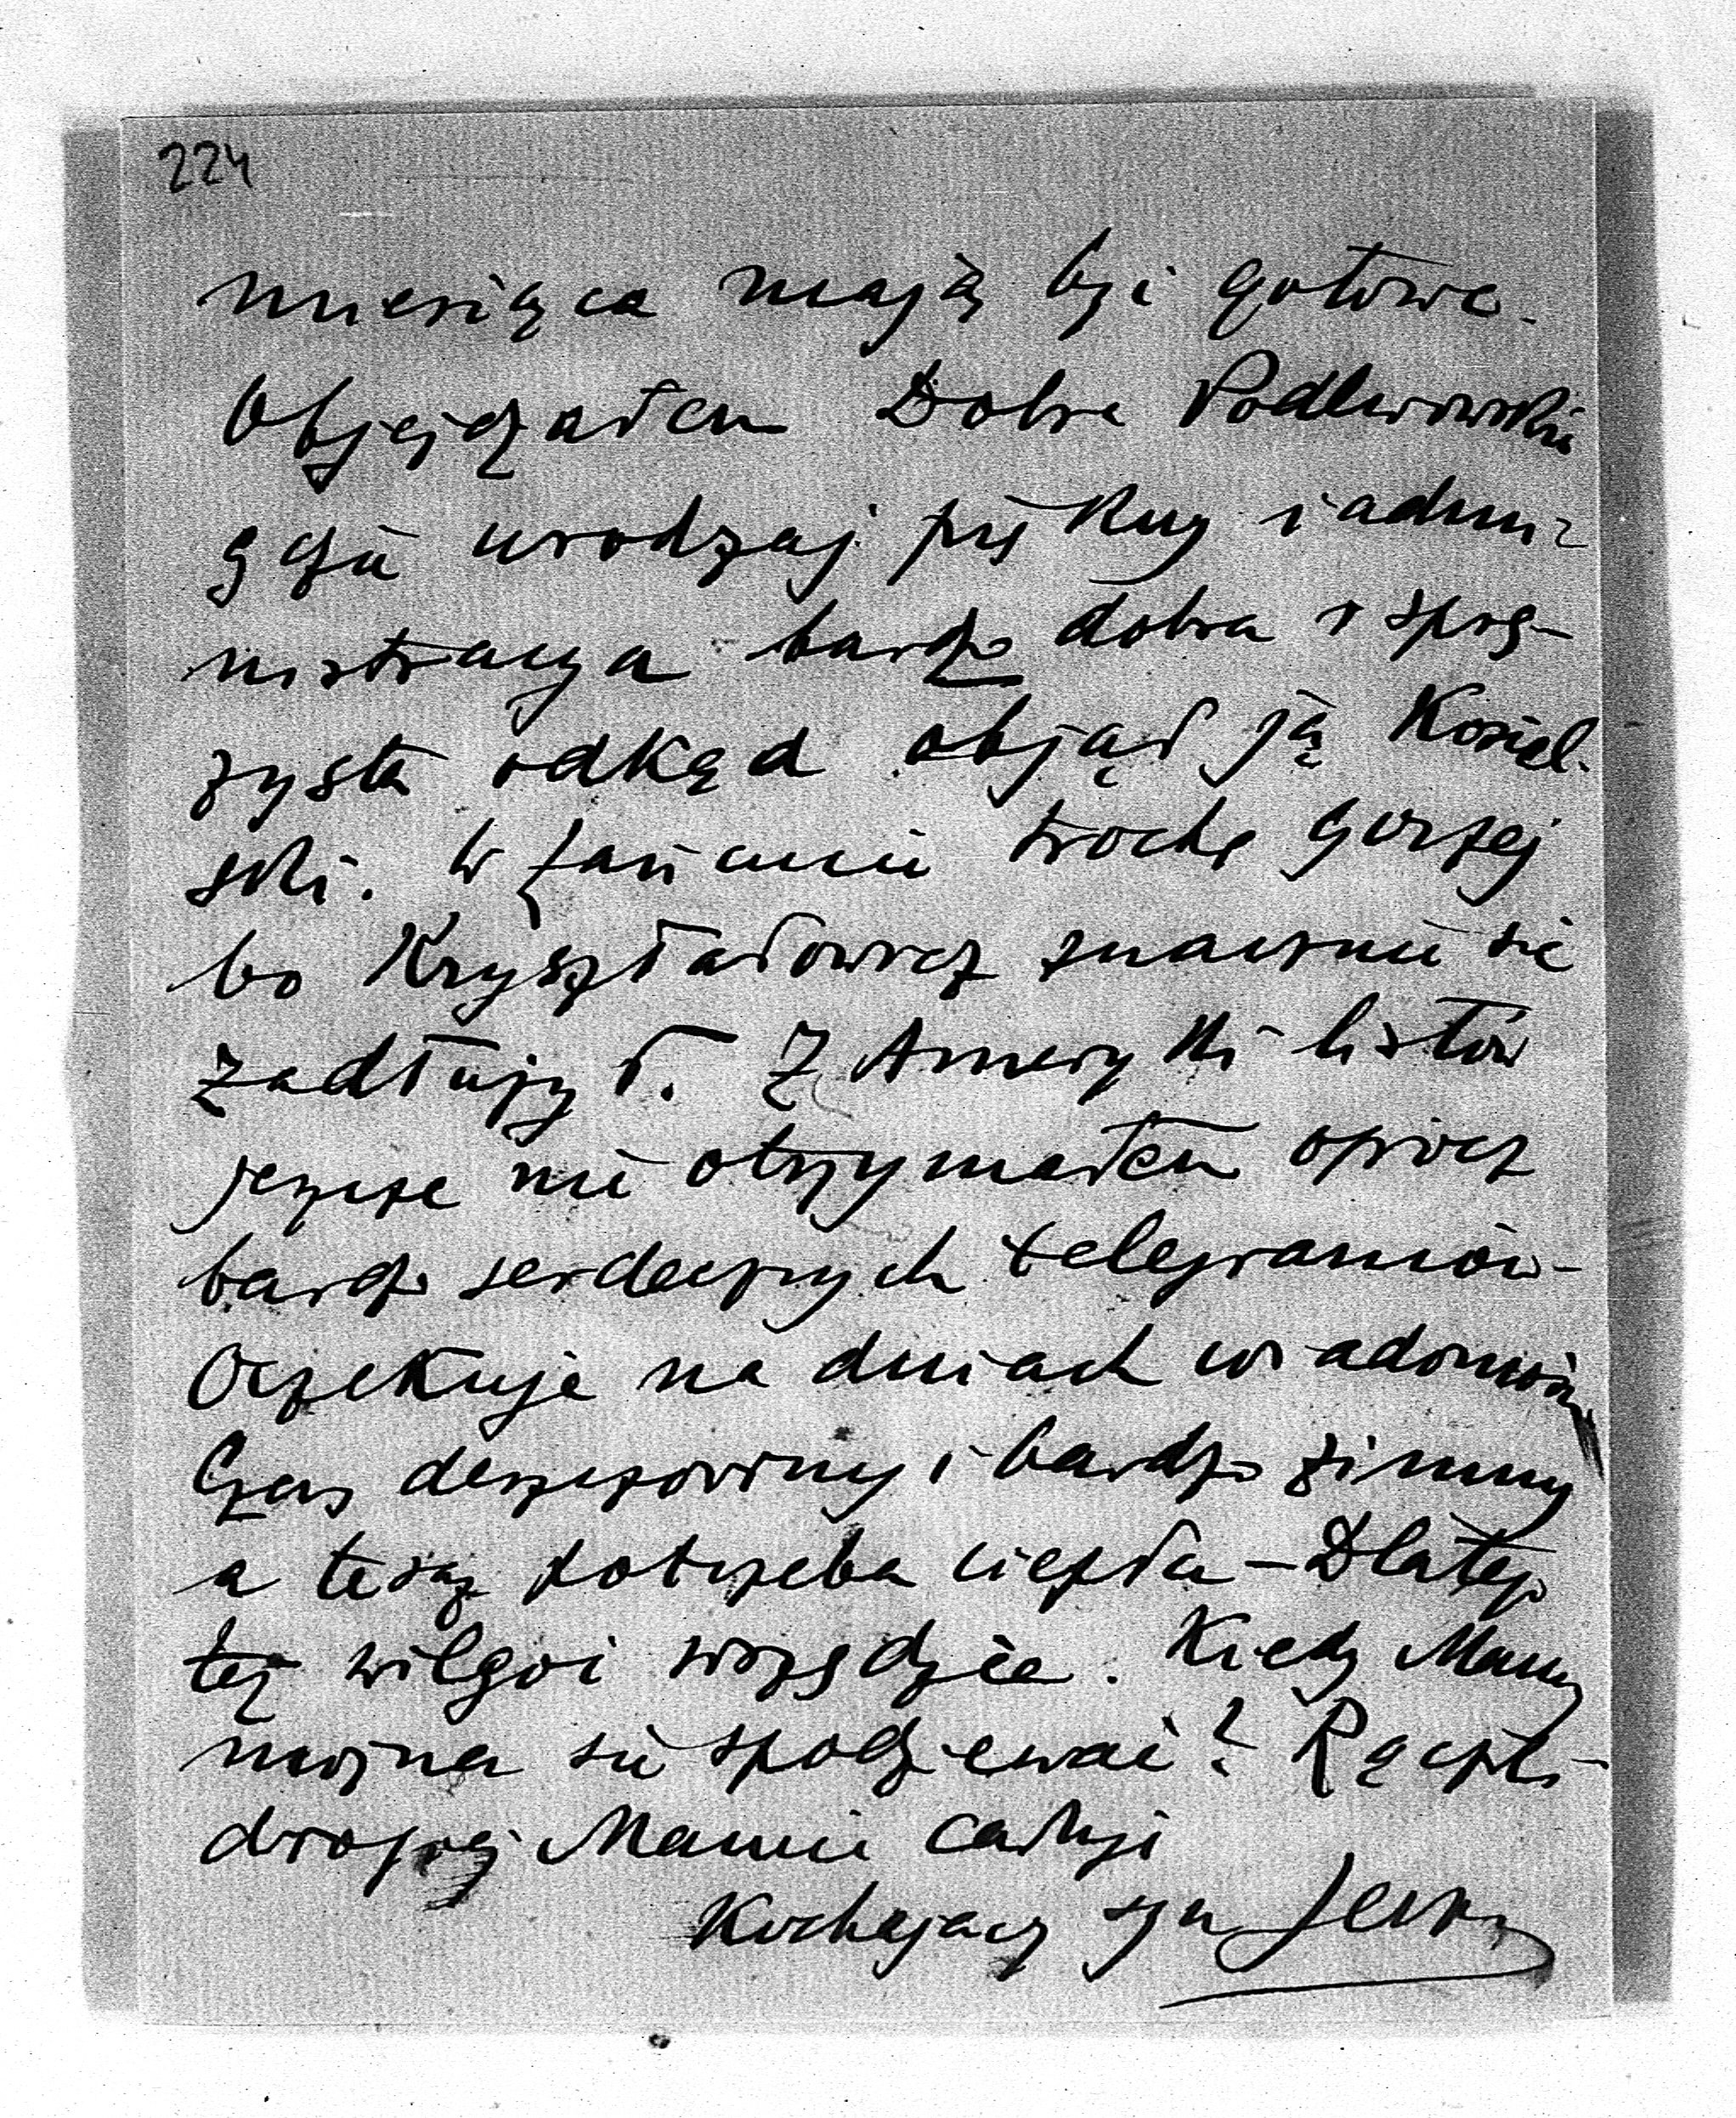 224
miesiąca mają być gotowe.
Objeżdżałem Dobra Podlwowskie
gdzie urodzaj piękny i admi-
nistracya bardzo dobra i sprę-
żysta odkąd objął ją Kozieł-
ski. W Łańcucie trochę gorzej
bo Kryształowicz znacznie się
zadłużył. Z Ameryki listów
jeszcze nie otrzymałem oprócz
bardzo serdecznych telegramów-
Oczekuję na dniach wiadomości
Czas deszczowny i bardzo zimny
a teraz potrzeba ciepła – Dlatego
też wilgoć wszędzie. Kiedy Mamy
można się spodziewać? Rączki
drogiej Mamie całuję
Kochający syn Jerzy